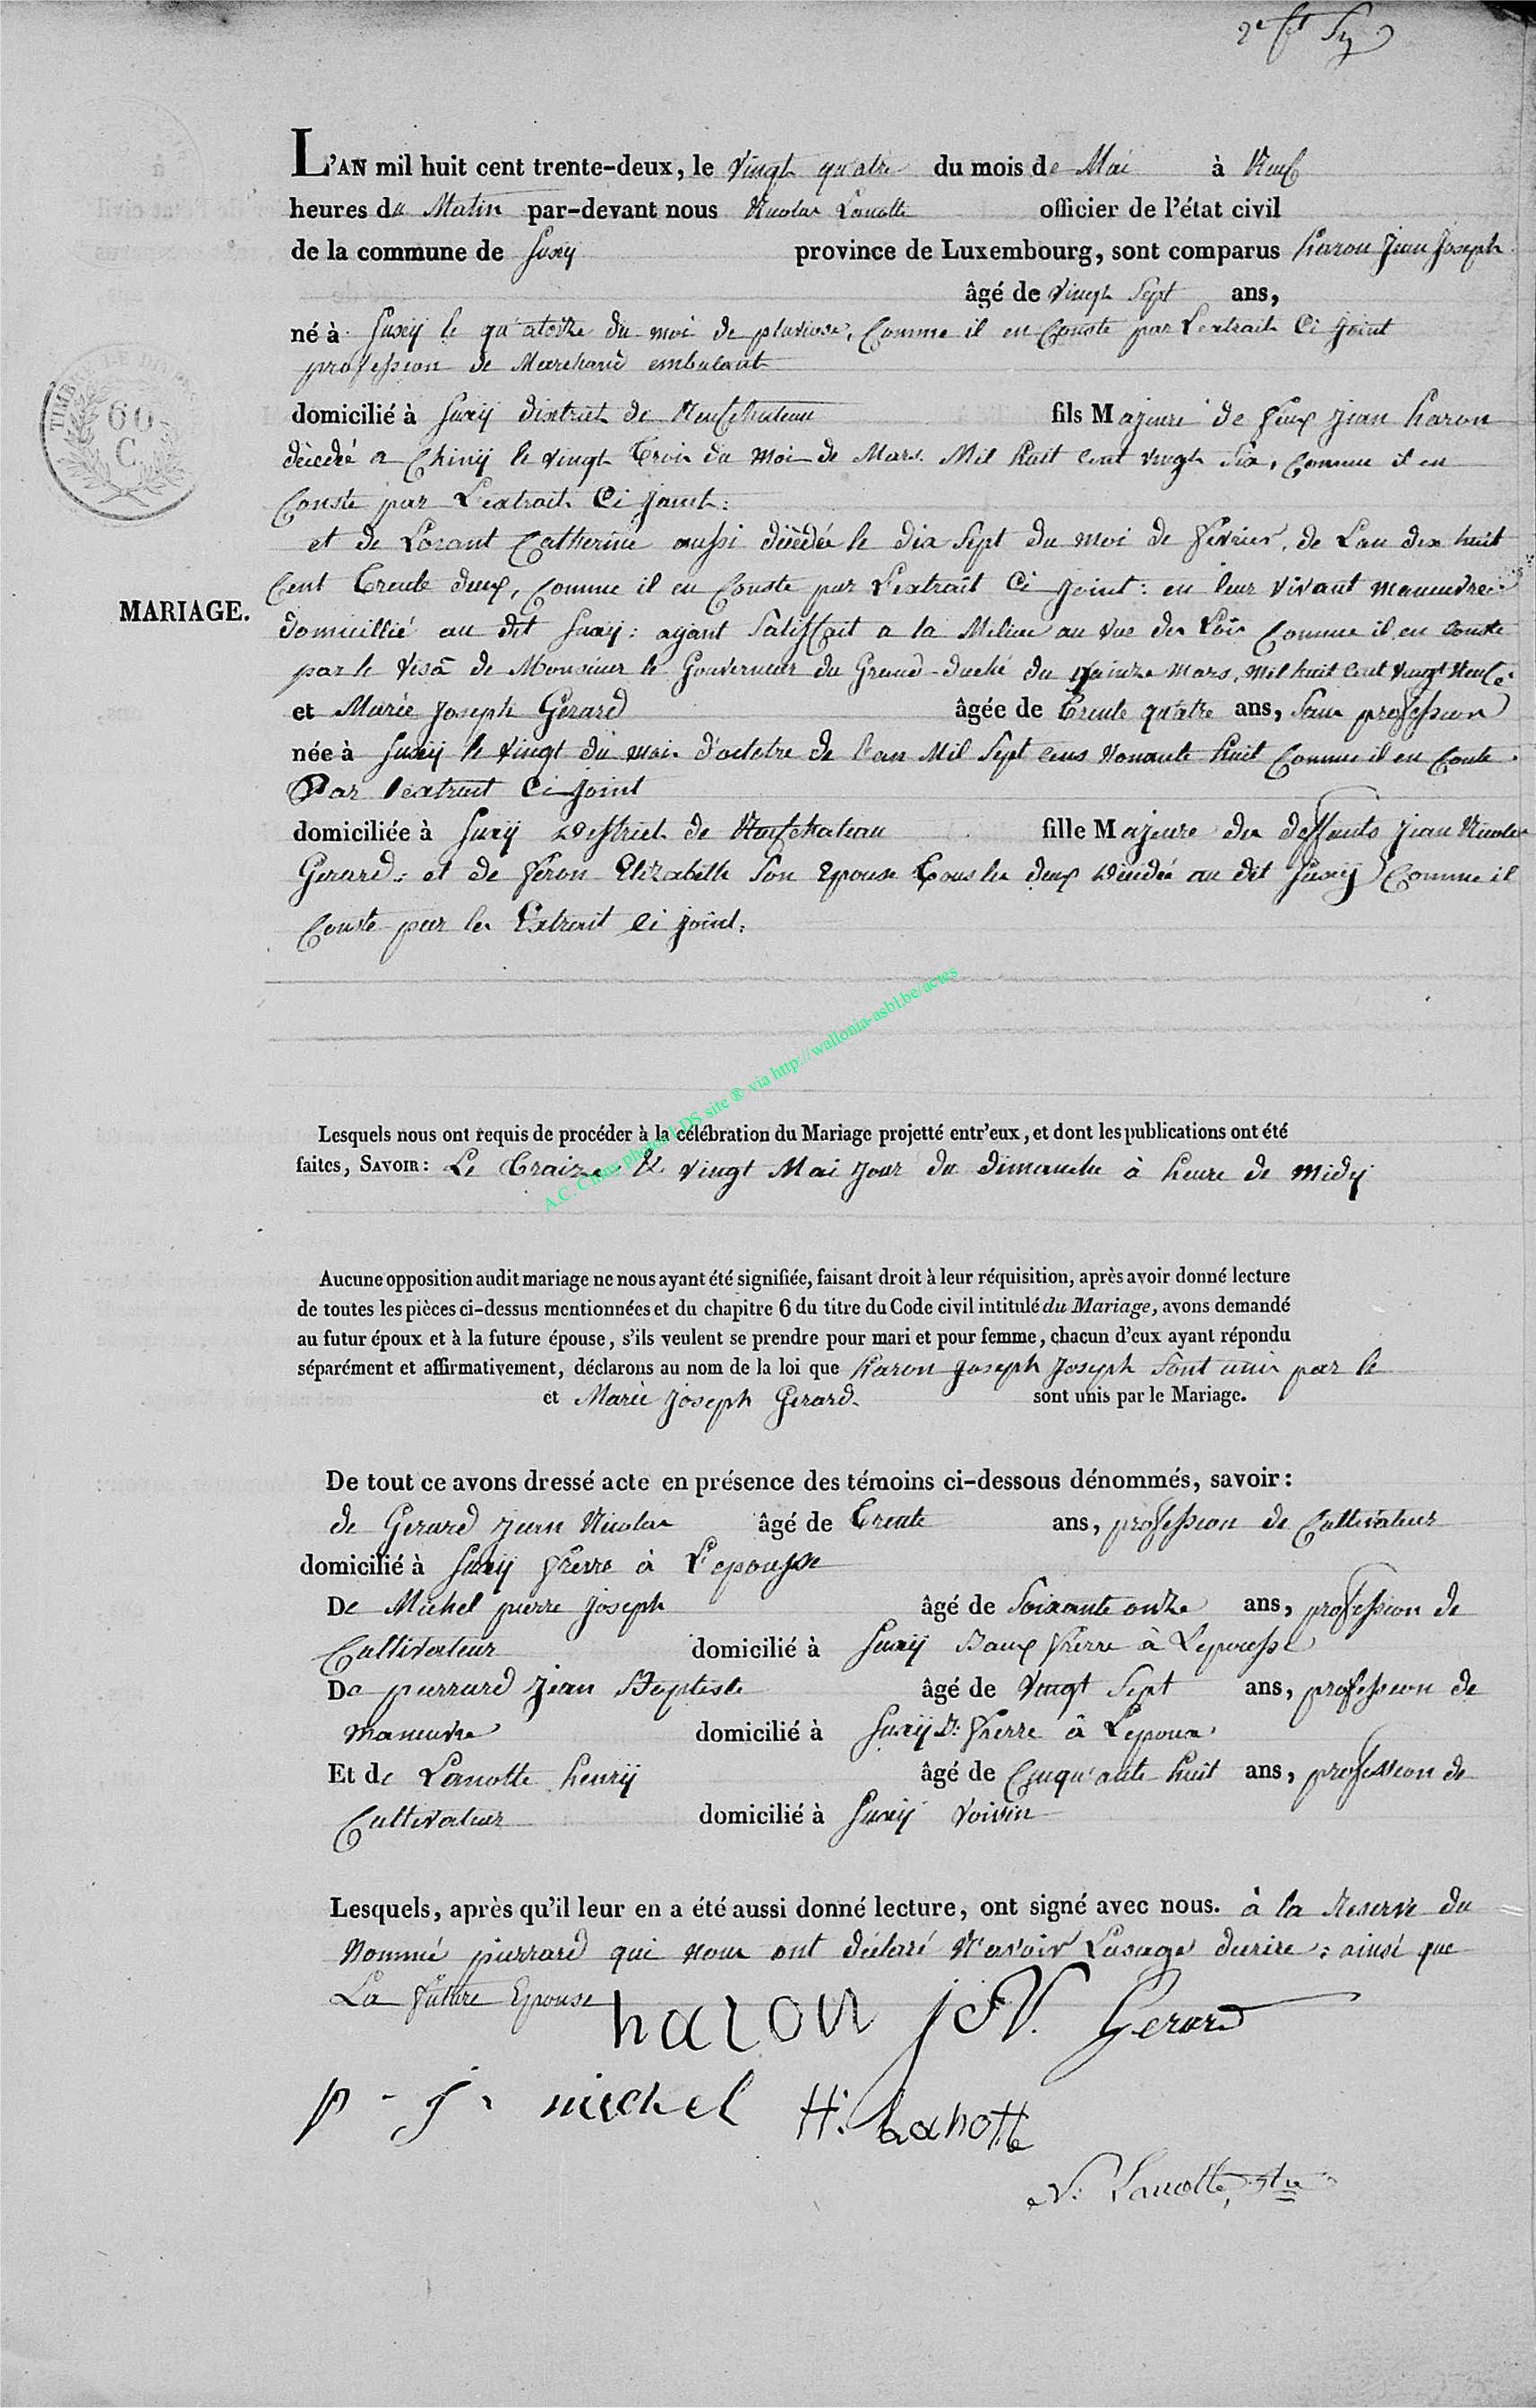 2e ft
L'AN mil huit cent trente-deux, le Vingt quatre du mois de Mai à Neuf
heures du Matin par-devant nous Nicolas Lanotte officier de l'état civil
de la commune de Suxÿ province de Luxembourg, sont comparus haron Jean Joseph
âgé de Vingt Sept ans,
né à Suxÿ le qu'atorze du moi de pluviose, Comme il en Conste par L'extrait Ci joint
profession de Marchand embulant
domicilié à Suxÿ district de Neufchateau fils Majeure de feux jean haron
décédé a Chinÿ le vingt trois du moi de Mars Mil huit cent vingt Six, Comme il en
Conste par L'extrait Ci joint:
et de Lorant Catherine aussi décédée le dix Sept du moi de février, de L'an dix huit
Cent trente deux, Comme il en Conste par L'extrait Ci joint: en leur vivant maneuvre
domicillié au dit Suxÿ: aÿant Satisffait a la Milice au vue des Lois Comme il en conste
par le visâ de Monsieur le Gouverneur du Grand-duché du quinze Mars, mil huit cent vingt Neufe
et Marie Joseph Gerard âgée de trente quatre ans, Sans profession
née à Suxÿ le Vingt du moi d'octobre de l'an Mil Sept cens Nonante huit Comme il en Conte
Par l'extrait Ci joint
domiciliée à Suxÿ District de Neufchateau fille Majeure des deffunts jean Nicolas
Gerard: et de feron Elizabeth Son Epouse tous les deux Décédée au dit Suxÿ Comme il
Conste par les Extrait Ci joint.
MARIAGE.
TIMBRE
60
C.
Lesquels nous ont requis de procéder à la célébration du Mariage projetté entr'eux, et dont les publications ont été
faites, SAVOIR: Le traize & vingt Mai jour du dimanche à heure de midÿ
A.C. Chiny photos LDS site ® via http://wallonia-asbl.be/actes
Aucune opposition audit mariage ne nous ayant été signifiée, faisant droit à leur réquisition, après avoir donné lecture
de toutes les pièces ci-dessus mentionnées et du chapitre 6 du titre du Code civil intitulé du Mariage, avons demandé
au futur époux et à la future épouse, s'ils veulent se prendre pour mari et pour femme, chacun d'eux ayant répondu
séparément et affirmativement, déclarons au nom de la loi que haron Joseph Joseph Sont unis par le
et Marie Joseph Gerard. sont unis par le Mariage.
De tout ce avons dressé acte en présence des témoins ci-dessous dénommés, savoir:
de Gerard jean Nicolas âgé de trente ans, profession de Cultivateur
domicilié à Suxÿ frerre à L'epousse
De Michel pierre joseph âgé de Soixante onze ans, profession de
Cultivateur domicilié à Suxÿ Baux frerre à L'epousse
De pierrard jean Baptiste âgé de Vingt Sept ans, profession de
maneuvre domicilié à Suxÿ Dt frerre à L'epoux
Et de Lanotte henrÿ âgé de Cinqu'ante huit ans, profession de
Cultivateur domicilié à Suxÿ Voisin
Lesquels, après qu'il leur en a été aussi donné lecture, ont signé avec nous. à la Reserve du
Nommé pierrard qui nous ont déclaré N'avoir L'usage decrire: ainsi que
La future Epouse
haron j Gerard
p - j. michel H. Lanotte
N: Lanotte